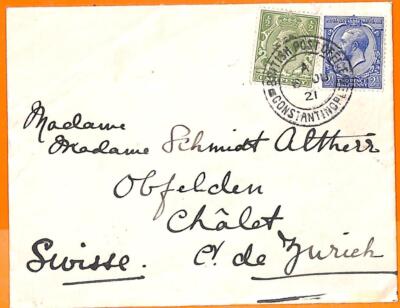 BRITISH POST OFFICE
A
21
CONSTANTINOPLE
Madame
Madame Schmidt Altherr
Obfelden
Châlet
Ct. de Zurich
Suisse.